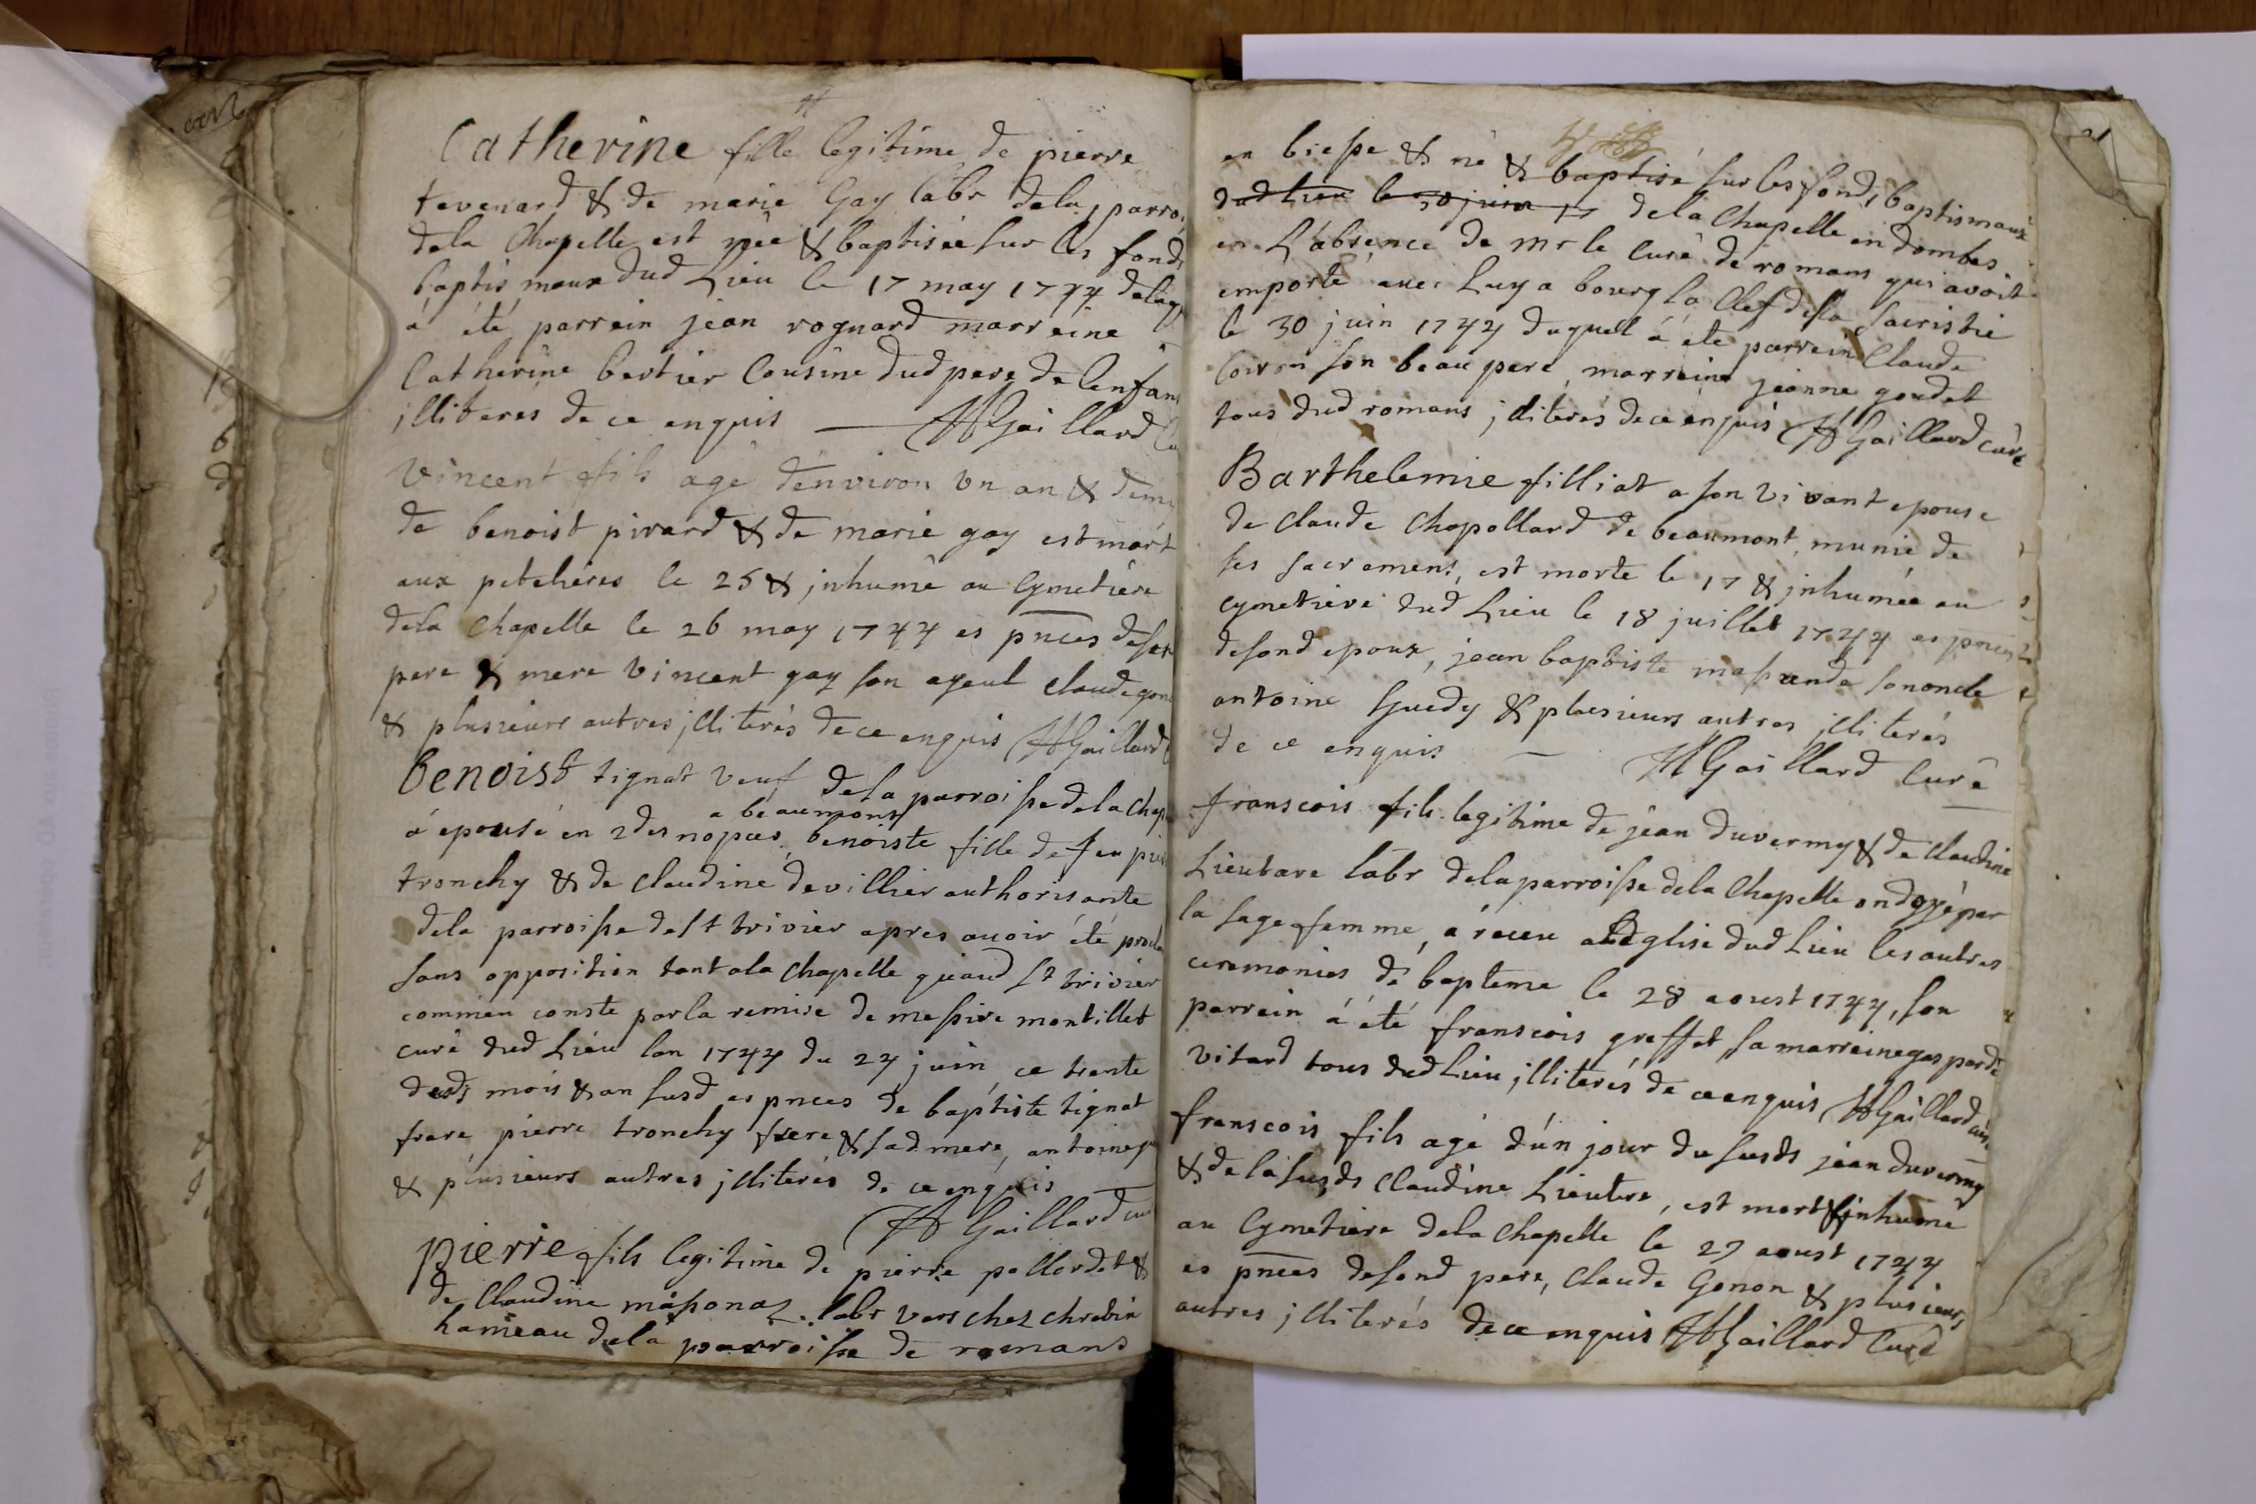 Catherine fille legitime de pierre
tevenard & de marie Gay labr dela parro
dela Chapelle est née & baptisée sur les fonds
baptismaux dud Lieu le 17 may 1744
a été parrein jean rognard marreine
Catherine bertier Cousine dud pere de lenfan
jlliterés de ce enquis — Gaillard
Vincent fils agé denviron un an & demi
de benoist pivard & de marie gay est mort
aux petelieres le 25 & jnhumé au Cymetiere
dela Chapelle le 26 may 1744 es pnces deses
pere & mere Vincent gay son ayeul claude gon
& plusieurs autres jlliterés de ce enquis Gaillard
Benoist tignat veuf dela parroisse dela Chap
a beaumont
á epousé en 2des nopces, benoiste fille de feu
tronchy & de claudine devillier authorisante
dela parroisse de st trivier apres avoir été procla
sans opposition tant ala Chapelle quaud st trivier
commen conste par la remise de messire montillet
curé dud Lieu lan 1744 du 24 juin ce trente
desds mois & an susd es pnces de baptiste tignat
frere pierre tronchy frere & sad mere, antoine
& plusieurs autres jlliterés de ce enquis
Gaillard cu
pierre fils legitime de pierre pallordet &
de Claudine massonaz labr vers chez chrétin
hameau dela parroisse de romans
en biesse & né & baptisé sur les fonds baptismaux
dud Lieu le 30 juin 17 dela Chapelle en dombes
en L'absence de Mr le Curé de romans qui avoit
emporté avec Luy a bourg la Clef dela sacristie
le 30 juin 1744 duquell á été parrein Claude
son beau pere, marreine jeanne goudet
tous dud romans jlliterés de ce enquis Gaillard curé
Barthelemie filliat a son vivant epouse
de claude Chapollard de beaumont, munie de
ses sacremens, est morte le 17 & jnhumée au
cymetiere dud Lieu le 18 juillet 1744 es pnces
desond epoux, jean baptiste son oncle
antoine Guedy & plusieurs autres jlliterés
de ce enquis — Gaillard Curé
franscois fils legitime de jéan duvermy & de claudine
Lieutare labr dela parroisse dela Chapelle ondoyé par
la sage femme, a receu a Leglise dud Lieu les autres
ceremonies de bapteme le 28 aoust 1744, son
parrein á été franscois greffet, sa marreine gasparde
vitard tous dud Lieu jlliterés de ce enquis Gaillard curé
franscois fils agé d'un jour du susds jéan duvermy
& de la susds Claudine Lieutare, est mort & jnhumé
au Cymetiere dela Chapelle le 29 aoust 1744
es pnces desond pere, Claude Gonon & plusieurs
autres jlliterés de ce enquis Gaillard Curé